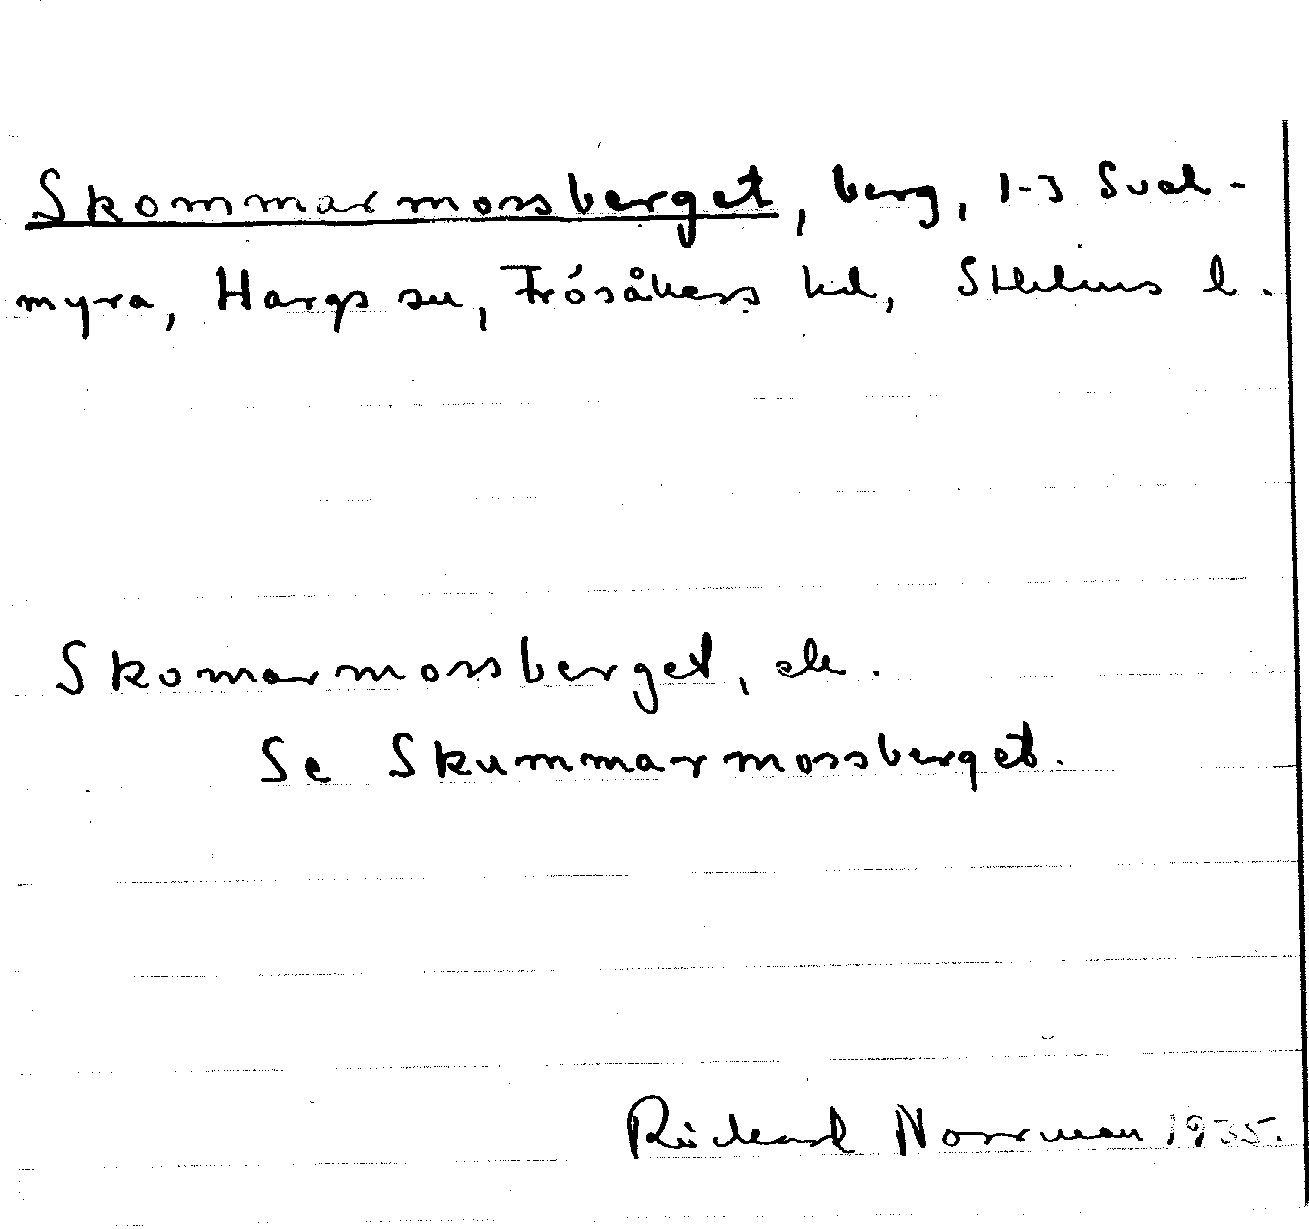 Skommarmossberget, berg, 1-3 Sval-
myra, Hargs sn, Frösåkers hd, Sthlms l.
Skomarmossberget, ek.
Se Skummarmossberget.
Rickard Norrman 1935.